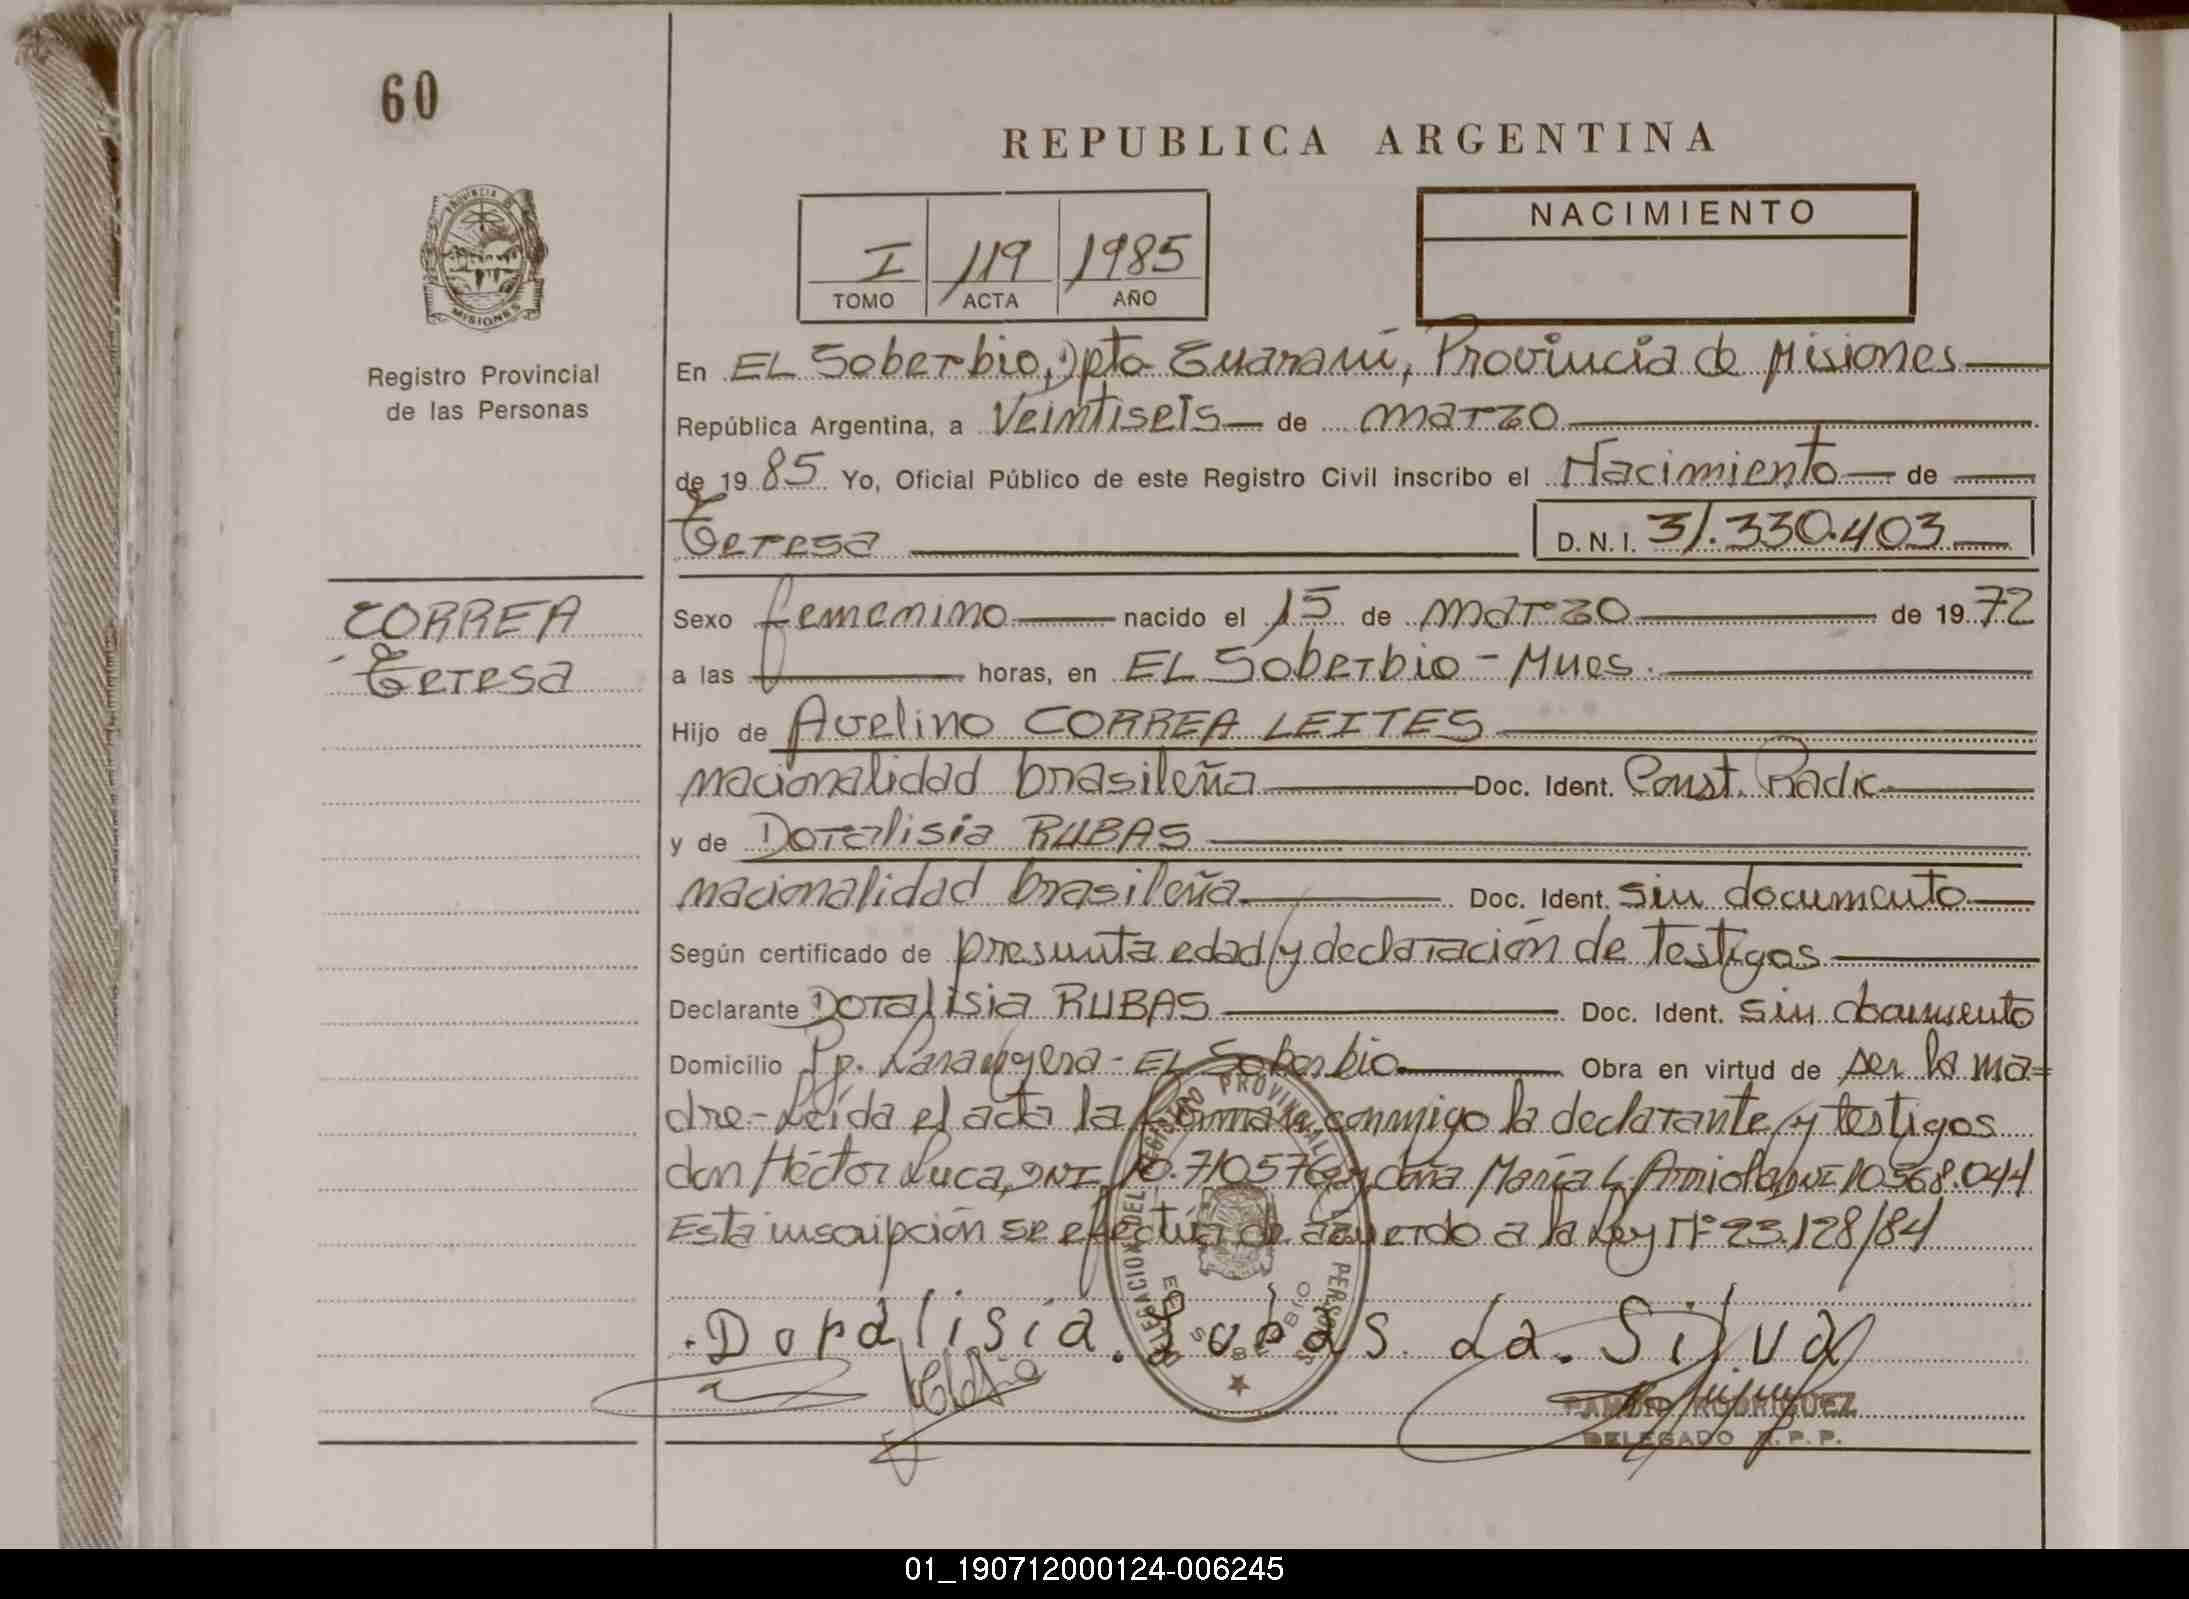 60
REPUBLICA ARGENTINA
I 119 1985
TOMO ACTA AÑO
NACIMIENTO
PROVINCIA DE
MISIONES
Registro Provincial
de las Personas
En EL Soberbio, Dpto Guaraní, Provincia de Misiones
República Argentina, a Veintiseis de marzo
de 19 85 Yo, Oficial Público de este Registro Civil inscribo el Nacimiento de
Teresa D.N.I. 31.330.403
CORREA
Teresa
Sexo femenino nacido el 15 de marzo de 19 72
a las horas, en EL Soberbio - Mnes.
Hijo de Avelino CORREA LEITES
nacionalidad brasileña Doc. Ident. Const. Radic
y de Doralisia RUBAS
nacionalidad brasileña Doc. Ident. sin documento
Según certificado de presunta edad y declaración de testigos
Declarante Doralisia RUBAS Doc. Ident. sin documento
Domicilio Pje. Larangera - EL Soberbio Obra en virtud de ser la ma=
dre - Leída el acta la firman conmigo la declarante y testigos
don Héctor Luca, DNI 10.710576 y doña María L. Arriola DNI 10.568.044
Esta inscripción se efectúa de acuerdo a la Ley Nº 23.128/84
DELEGACION DEL REGISTRO PROVINCIAL PERSONAS
EL SOBERBIO
Doralisia. Rubas. da. Silva
RAMON RODRIGUEZ
DELEGADO R.P.P.
01_190712000124-006245